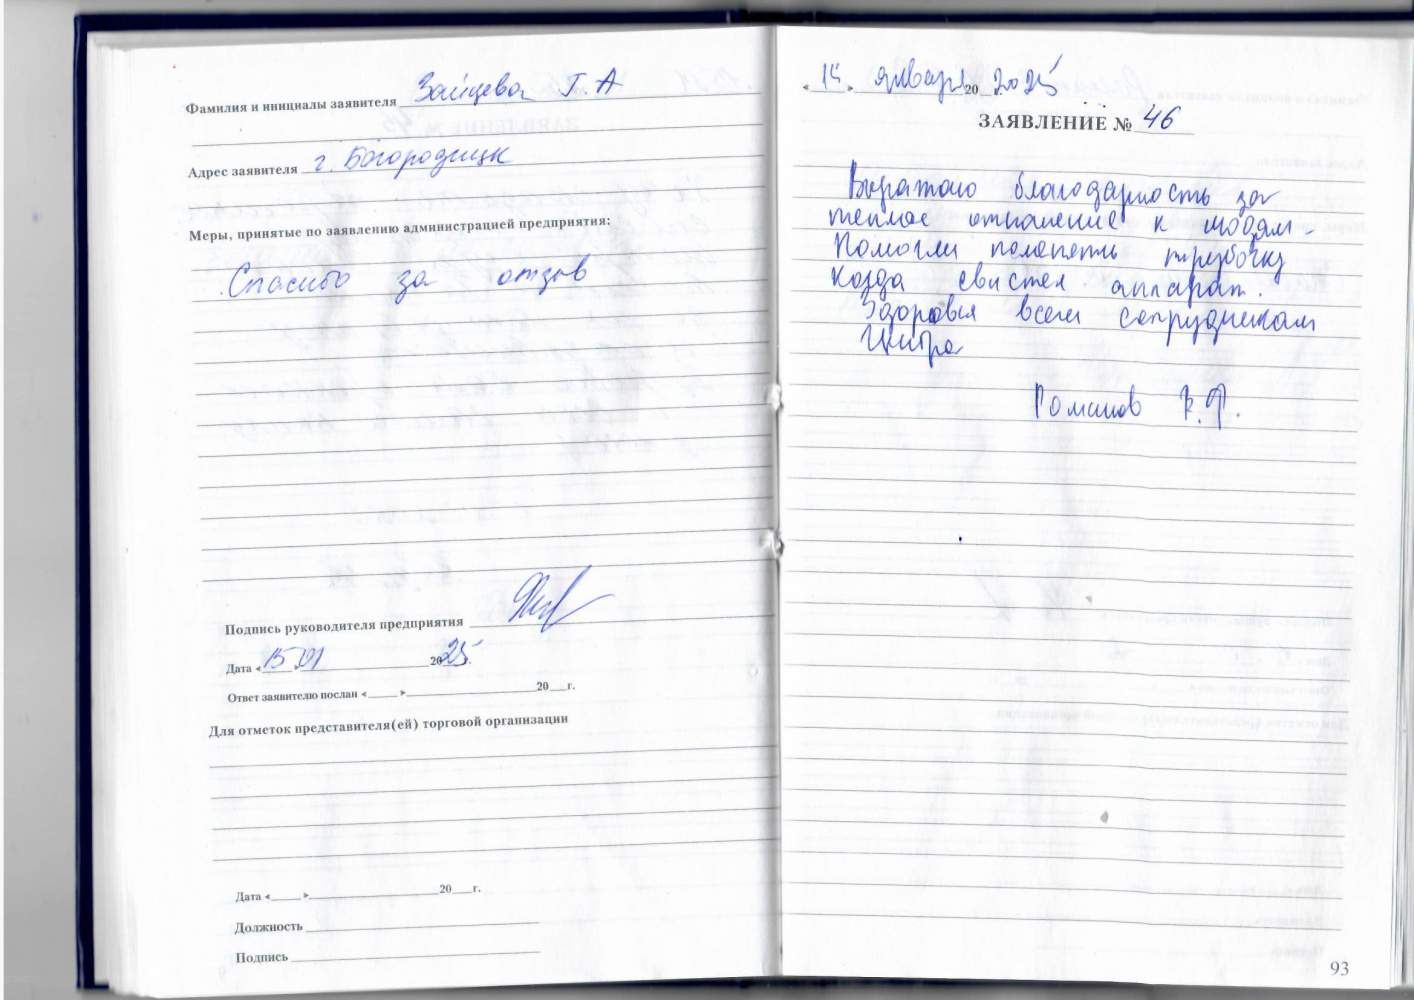 Фамилия и инициалы заявителя Зайцева Г.А
Адрес заявителя г. Богородицк
Меры, принятые по заявлению администрацией предприятия:
Спасибо за отзыв
Подпись руководителя предприятия
Дата «15» 01 2025г.
Ответ заявителю послан «____»____20__г.
Для отметок представителя(ей) торговой организации
Дата «____»____20__г.
Должность
Подпись
«14» января 20 2025
ЗАЯВЛЕНИЕ № 46
Выражаю благодарность за
теплое отношение к людям.
Помогли поменять трубочку
когда свистел аппарат.
Здоровья всем сотрудникам
Центра
Романов В.Ф.
93